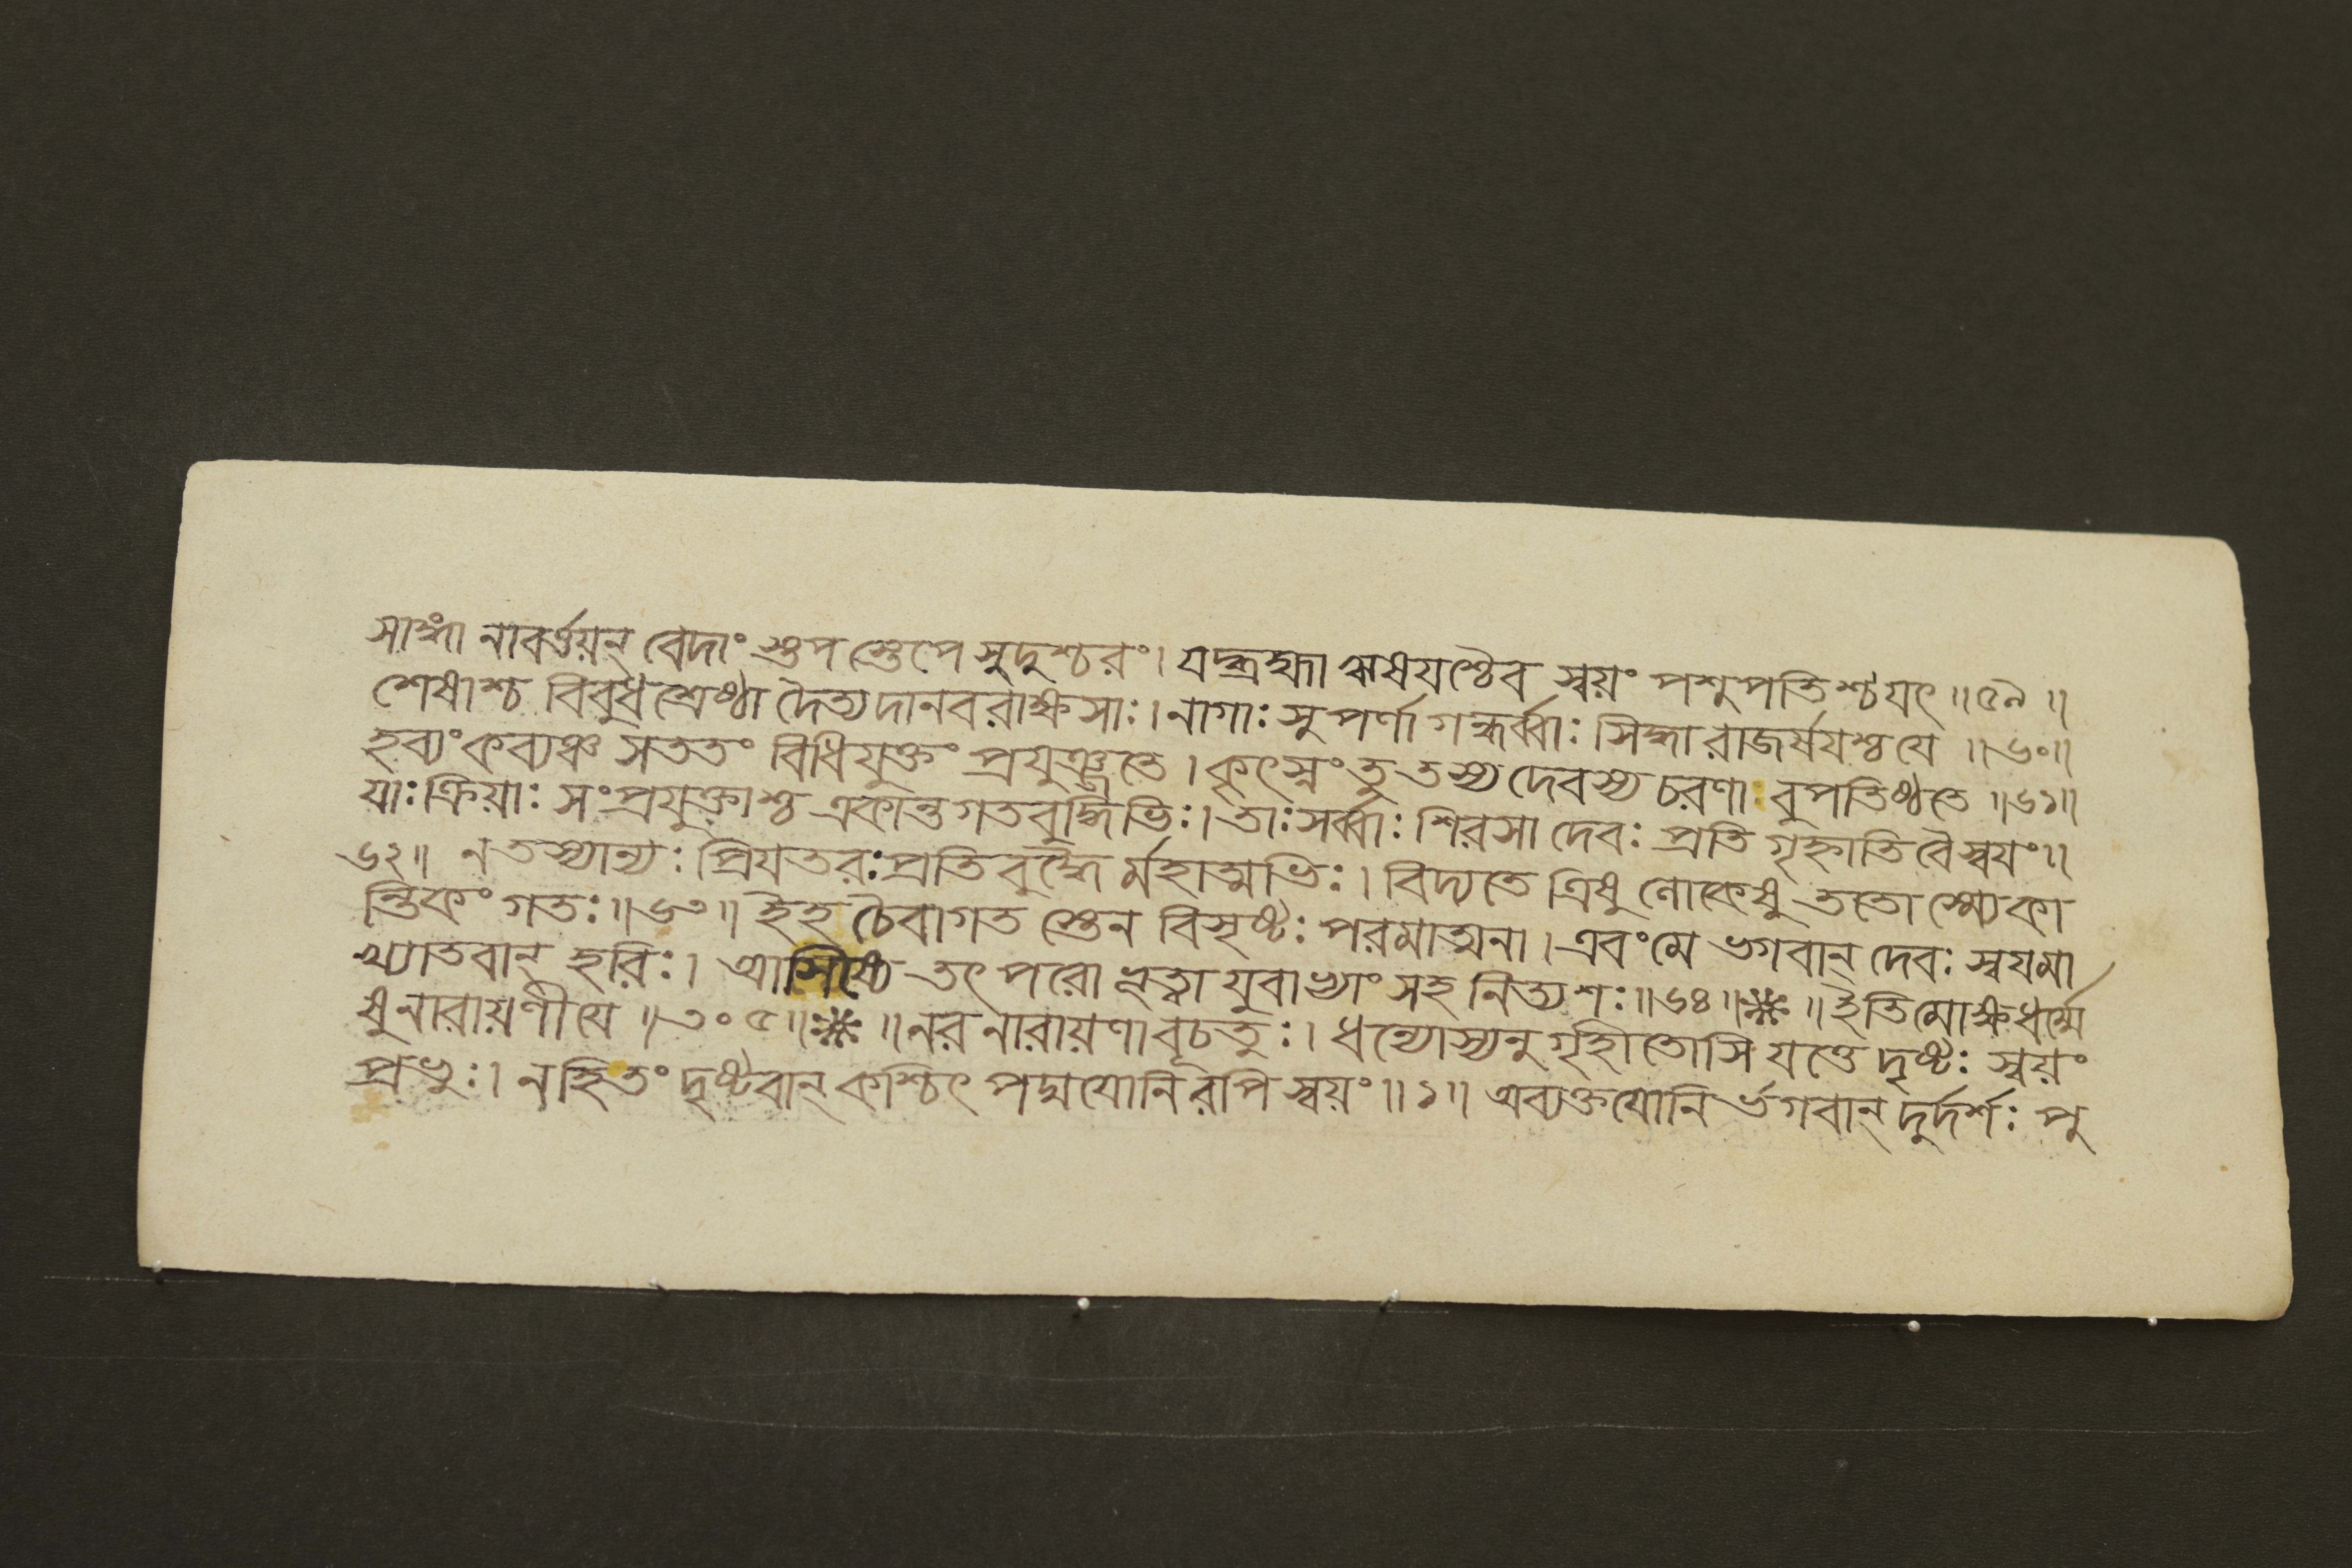 সাঙ্গা নাবর্ত্তয়ন্ বেদাং স্তপ স্তেপে সুদুশ্চরং। যদ্ব্রহ্মা ঋষয়শ্চৈব স্বয়ং পশুপতিশ্চ যৎ ॥৫৯॥
শেষাশ্চ বিবুধশ্রেষ্ঠা দৈত্যদানবরাক্ষসাঃ। নাগাঃ সুপর্ণা গন্ধর্ব্বাঃ সিদ্ধা রাজর্ষযশ্চ যে ॥৬০॥
হব্যং কব্যঞ্চ সততং বিধিযুক্তং প্রযুঞ্জতে। কৃৎস্নং তু তস্য দেবস্য চরণা বুপতিষ্ঠতে ॥৬১॥
যাঃ ক্রিয়াঃ সংপ্রযুক্তাশ্চ একান্তগতবুদ্ধিভিঃ। তাঃ সর্ব্বাঃ শিরসা দেবঃ প্রতিগৃহ্নাতি বৈ স্বযং॥
৬২॥ ন তস্যান্যঃ প্রিযতরঃ প্রতিবুদ্ধৈ র্মহাত্মভিঃ। বিদ্যতে ত্রিষু লোকেষু ততো স্ম্যেকা
ন্তিকং গতঃ॥৬৩॥ ইহ চৈবাগত স্তেন বিসৃষ্টঃ পরমাত্মনা। এবং মে ভগবান্ দেবঃ স্বযমা
খ্যাতবান্ হরিঃ। আসিষ্যে তৎপরো ভূত্বা যুবাভ্যাং সহ নিত্যশঃ॥৬৪॥ ❈ ॥ ইতি মোক্ষধর্ম্মে
ষু নারায়ণীযে ॥৩০৫॥ ❈ ॥ নরনারায়ণাবূচতুঃ। ধন্যোস্যনুগৃহীতোসি যত্তে দৃষ্টঃ স্বয়ং
প্রভুঃ। ন হি তং দৃষ্টবান্ কশ্চিৎ পদ্মযোনিরপি স্বয়ং॥১॥ অব্যক্তযোনি র্ভগবান্ দুর্দর্শঃ পু